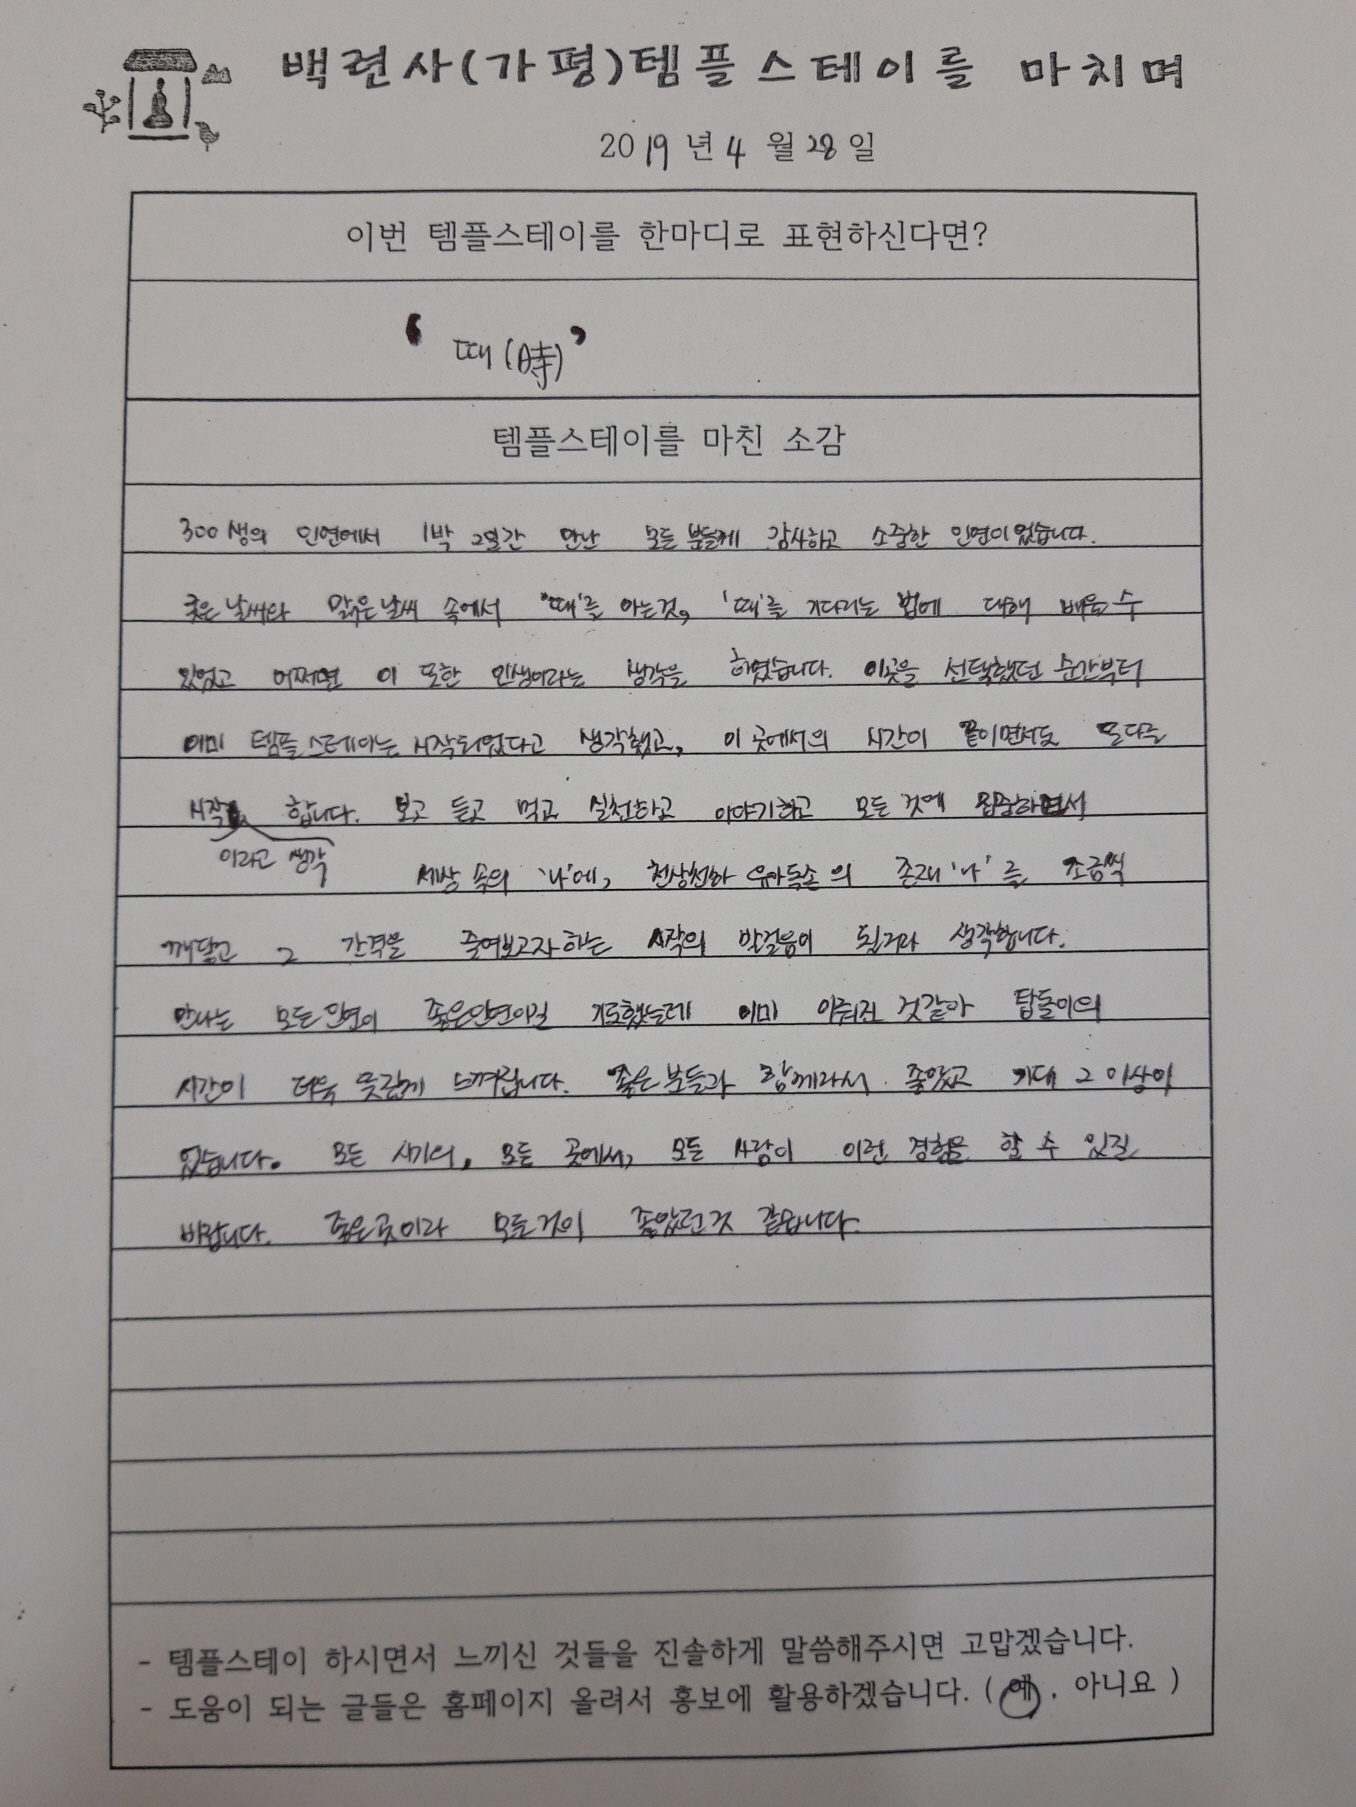 백련사(가평)템플스테이를 마치며
2019년 4월 28일
이번 템플스테이를 한마디로 표현하신다면?
‘때(時)’
템플스테이를 마친 소감
300생의 인연에서 1박 2일간 만난 모든 분들께 감사하고 소중한 인연이었습니다.
궂은 날씨와 맑은 날씨 속에서 '때'를 아는것, '때'를 기다리는 법에 대해 배울 수
있었고 어쩌면 이 또한 인생이라는 생각을 하였습니다. 이곳을 선택했던 순간부터
이미 템플스테이는 시작되었다고 생각했고, 이 곳에서의 시간이 끝이면서도 또다른
시작이라고 생각합니다. 보고 듣고 먹고 실천하고 이야기하고 모든 것에 집중하면서
세상 속의 '나'에, 천상천하 유아독존의 존재 '나'를 조금씩
깨닫고 그 간격을 줄여보고자하는 시작의 발걸음이 된거라 생각합니다.
만나는 모든인연이 좋은인연이길 기도했는데 이미 이뤄진 것같아 탑돌이의
시간이 더욱 뜻깊게 느껴집니다. 좋은 분들과 함께라서 좋았고 기대 그 이상이
었습니다. 모든 시기의, 모든 곳에서, 모든 사람이 이런 경험을 할 수 있길
바랍니다. 좋은곳이라 모든것이 좋았던것 같습니다.
- 템플스테이 하시면서 느끼신 것들을 진솔하게 말씀해주시면 고맙겠습니다.
- 도움이 되는 글들은 홈페이지 올려서 홍보에 활용하겠습니다. ( 예 , 아니요 )